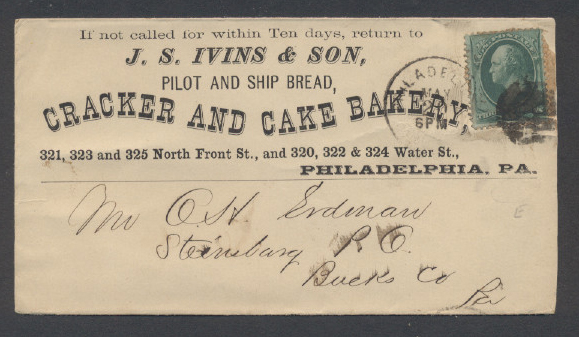 If not called for within Ten days, return to
J. S. IVINS & SON,
PILOT AND SHIP BREAD,
CRACKER AND CAKE BAKERY,
321, 323 and 325 North Front St., and 320, 322 & 324 Water St.,
PHILADELPHIA, PA.
MAY
6PM
Mr O. H. Erdman
Steinsburg P.O.
Bucks Co
Pa